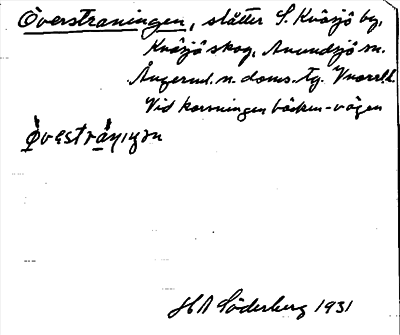 Överstraningen, slåtter S. Kväsjö by,
Kväsjö skog, Anundsjö sn.
Ångerml. n. doms. tg. Vnorrl. l.
Vid korsningen bäcken-vägen
Övestråniŋən
HA Söderberg 1931